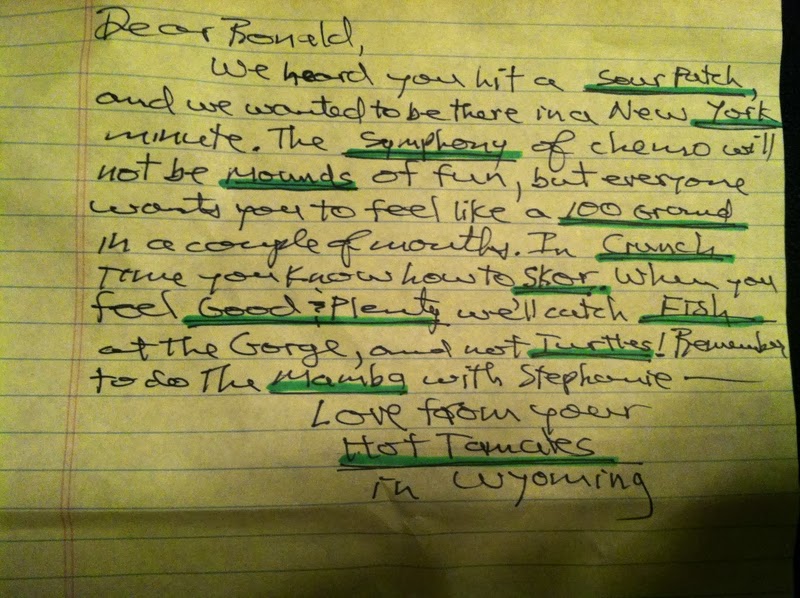 Dear Ronald,
We heard you hit a Sour Patch,
and we wanted to be there in a New York
minute. The Symphony of chemo will
not be Mounds of fun, but everyone
wants you to feel like a 100 Grand
in a couple of months. In Crunch
time you know how to Skor. When you
feel Good & Plenty we'll catch Fish
at the Gorge, and not Turtles! Remember
to do the Mamba with Stephanie —
Love from your
Hot Tamales
in Wyoming